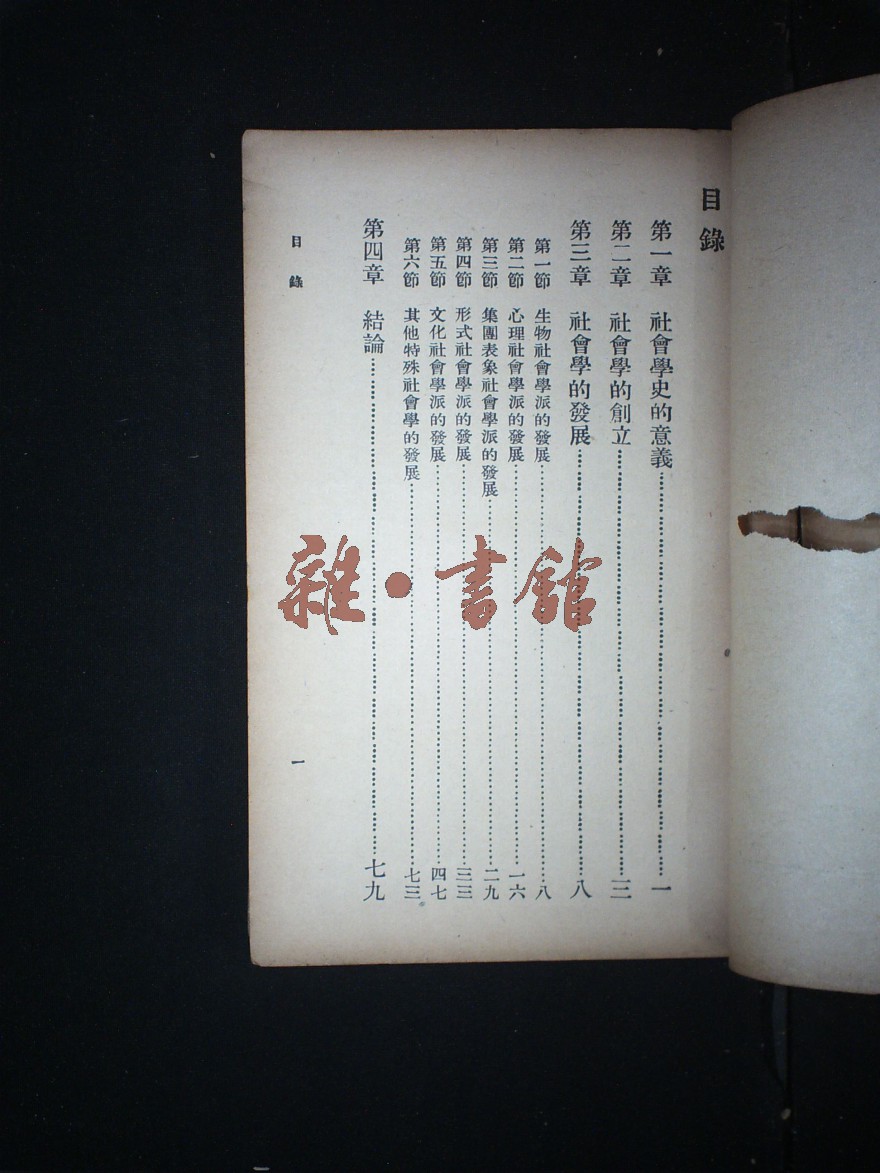 目錄
第一章 社會學史的意義……一
第二章 社會學的創立……三
第三章 社會學的發展……八
第一節 生物社會學派的發展……八
第二節 心理社會學派的發展……一六
第三節 集團表象社會學派的發展……二九
第四節 形式社會學派的發展……三三
第五節 文化社會學派的發展……四七
第六節 其他特殊社會學的發展……七三
第四章 結論……七九
目錄
一
雜·書館